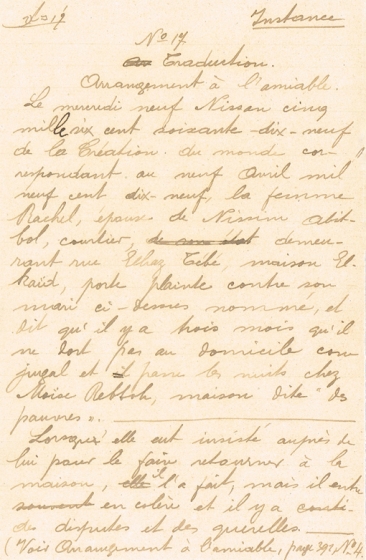 Nº 17 Instance
Nº 17
Traduction.
Arrangement à l'amiable.
Le mercredi neuf Nissan cinq
mille six cent soixante-dix-neuf
de la Création du monde cor-
respondant au neuf Avril mil
neuf cent dix-neuf, la femme
Rachel, épouse de Nissim Abit-
bol, courtier, demeu-
rant rue Tébé, maison El-
kaïd, porte plainte contre son
mari ci-dessus nommé, et
dit qu'il y a trois mois qu'il
ne dort pas au domicile con
jugal et il passe les nuits chez
Moïse Rebboh, maison dite "des
pauvres".
Lorsqu'elle eut insisté auprès de
lui pour le faire retourner à la
maison, il l'a fait, mais il entre
souvent en colère et il y a
des disputes et des querelles.
(Voir Arrangement à l'amiable, page 392, Nº 4